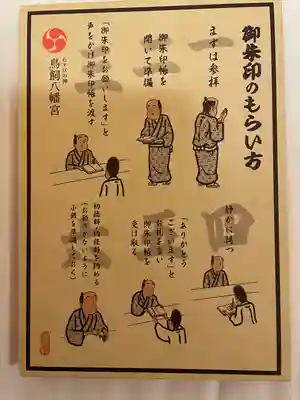 御朱印のもらい方
一
まずは参拝
二
御朱印帳を
開いて準備
三
「御朱印をお願いします」と
声をかけ御朱印帳を渡す
四
静かに待つ
五
「ありがとう
ございます」と
お礼を言い
御朱印帳を
受け取る
六
初穂料・納経料を納める
(お釣りがないように
小銭を準備しておく)
むすびの神
鳥飼八幡宮